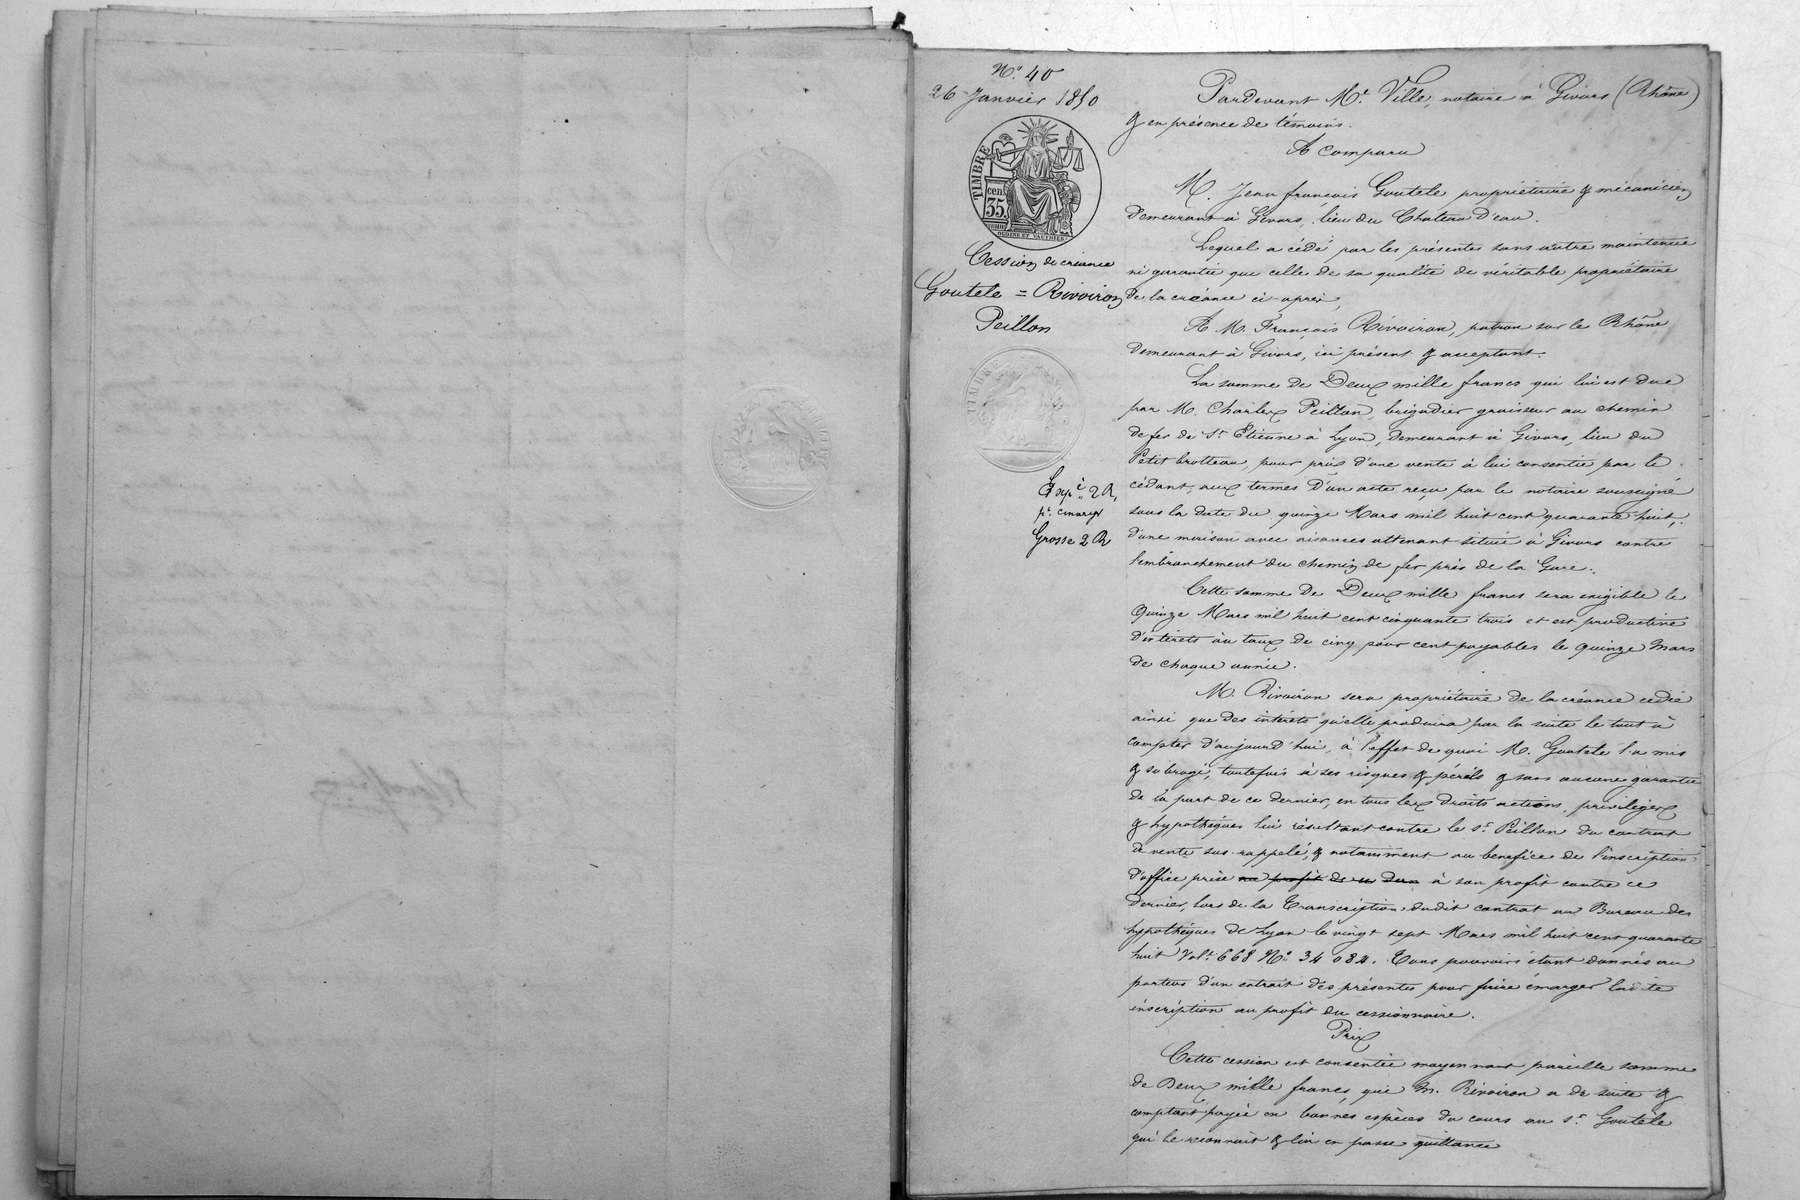 N.° 40
26 Janvier 1850
TIMBRE
cen.
35.
OUDINÉ ET VAUTHIER
Cession de créance
Goutele = Rivoiron
Peillon
TIMBRE
Exp.é 2 R,
Grosse 2 R
Pardevant M.e Ville, notaire à Givors (Rhône)
& en présence de témoins.
A Comparu
M. Jean françois Goutele propriétaire & mécanicien
demeurant à Givors, lieu du Chateau d'eau.
Lequel a cédé par les présentes sans autre maintenue
ni garantie que celle de sa qualité de véritable propriétaire
de la créance ci-après,
A M. François Rivoiron, patron sur le Rhône
demeurant à Givors, ici présent & acceptant.
La somme de Deux mille francs qui lui est due
par M. Charles Peillon, brigadier graisseur au chemin
de fer de St Etienne à Lyon, demeurant à Givors, lieu du
Petit brotteau, pour prix d'une vente à lui consentie par le
cédant, aux termes d'un acte reçu par le notaire soussigné
sous la date du quinze Mars mil huit cent quarante huit,
d'une maison avec aisances attenant située à Givors contre
l'embranchement du chemin de fer près de la Gare.
Cette somme de Deux mille francs sera exigible le
Quinze Mars mil huit cent cinquante trois et est productive
d'intérêts au taux de cinq pour cent payables le quinze Mars
de chaque année.
M. Rivoiron sera propriétaire de la créance cédée
ainsi que des intérêts qu'elle produira par la suite le tout à
compter d'aujourd'hui, à l'effet de quoi M. Goutele l'a mis
& subrogé, toutefois à ses risques & périls & sans aucune garantie
de la part de ce dernier, en tous les droits actions, privilèges
& hypothèques lui résultant contre le Sr Peillon du contrat
de vente sus-rappelé, & notamment au bénéfice de l'inscription
d'office prise au profit de ce dern à son profit contre ce
dernier, lors de la Transcription dudit contrat au Bureau des
hypothèques de Lyon le vingt sept Mars mil huit cent quarante
huit Vol. 668 N° 34 084. Tous pouvoirs étant donnés au
porteur d'un extrait des présentes pour faire émarger ladite
inscription au profit du cessionnaire.
Prix
Cette cession est consentie moyennant pareille somme
de Deux mille francs, que M. Rivoiron a de suite &
comptant payée en bonnes espèces du cours au Sr Goutele
qui le reconnait & lui en passe quittance